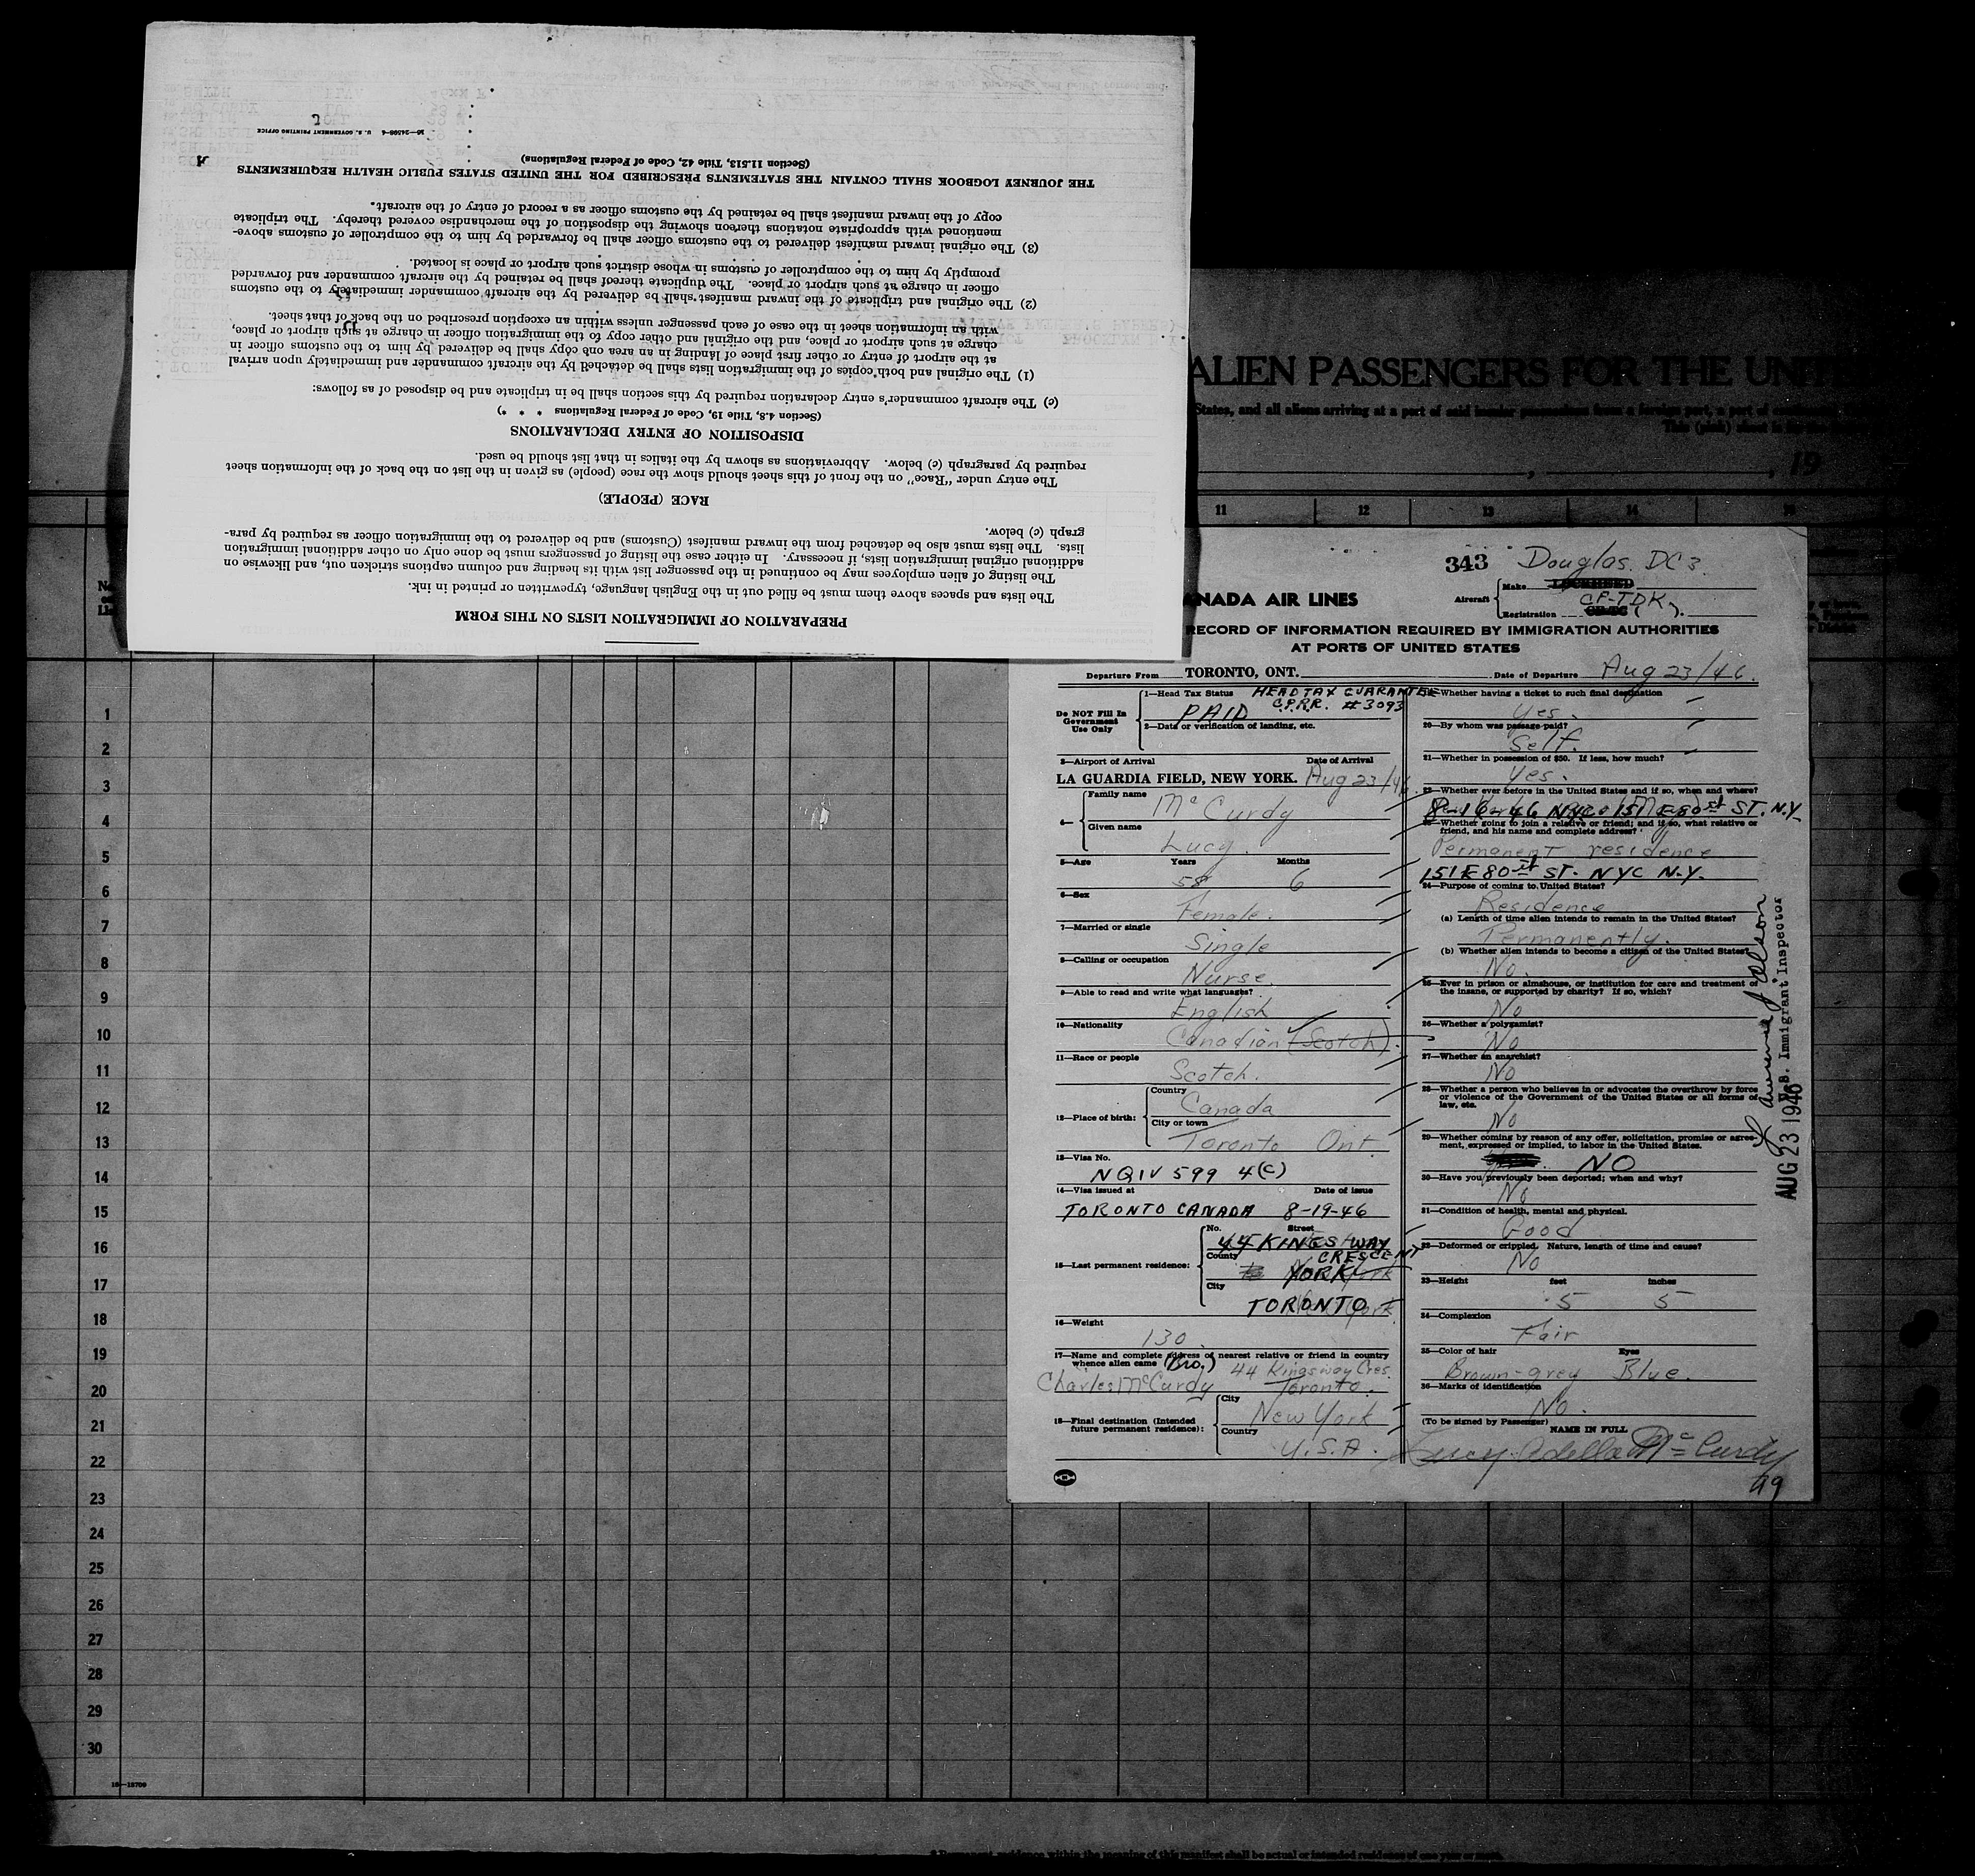 PREPARATION OF IMMIGRATION LISTS ON THIS FORM
The lists and spaces above them must be filled out in the English language, typewritten or printed in ink.
The listing of alien employees may be continued in the passenger list with its heading and column captions stricken out, and likewise on
additional original immigration lists, if necessary. In either case the listing of passengers must be done only on other additional immigration
lists. The lists must also be detached from the inward manifest (Customs) and be delivered to the immigration officer as required by para-
graph (c) below.
RACE (PEOPLE)
The entry under "Race" on the front of this sheet should show the race (people) as given in the list on the back of the information sheet
required by paragraph (c) below. Abbreviations as shown by the italics in that list should be used.
DISPOSITION OF ENTRY DECLARATIONS
(Section 4.8, Title 19, Code of Federal Regulations * * *)
(c) The aircraft commander's entry declaration required by this section shall be in triplicate and be disposed of as follows:
(1) The original and both copies of the immigration lists shall be detached by the aircraft commander and immediately upon arrival
at the airport of entry or other first place of landing in an area one copy shall be delivered by him to the customs officer in
charge at such airport or place, and the original and other copy to the immigration officer in charge at such airport or place,
with an information sheet in the case of each passenger unless within an exception prescribed on the back of that sheet.
(2) The original and triplicate of the inward manifest shall be delivered by the aircraft commander immediately to the customs
officer in charge at such airport or place. The duplicate thereof shall be retained by the aircraft commander and forwarded
promptly by him to the comptroller of customs in whose district such airport or place is located.
(3) The original inward manifest delivered to the customs officer shall be forwarded by him to the comptroller of customs above-
mentioned with appropriate notations thereon showing the disposition of the merchandise covered thereby. The triplicate
copy of the inward manifest shall be retained by the customs officer as a record of entry of the aircraft.
THE JOURNEY LOGBOOK SHALL CONTAIN THE STATEMENTS PRESCRIBED FOR THE UNITED STATES PUBLIC HEALTH REQUIREMENTS
(Section 11.513, Title 42, Code of Federal Regulations)
16—24598-4 U. S. GOVERNMENT PRINTING OFFICE
ALIEN PASSENGERS FOR THE UNITE
States, and all aliens arriving at a port of said insular possessions from a foreign port, a port of
This (pink) sheet is for the
, 19
11 12 13 14 15
343 Douglas. DC3.
Make LOCKHEED
Aircraft
CF-TDK
Registration CF-TC ( ).
ANADA AIR LINES
RECORD OF INFORMATION REQUIRED BY IMMIGRATION AUTHORITIES
AT PORTS OF UNITED STATES
Departure From TORONTO, ONT. Date of Departure Aug 23/46.
Do NOT Fill In Government Use Only
1—Head Tax Status HEAD TAX GUARANTEE
PAID C.P.R.R. #3093
2—Date or verification of landing, etc.
3—Airport of Arrival Date of Arrival
LA GUARDIA FIELD, NEW YORK. Aug 23/46.
4— Family name
McCurdy
Given name
Lucy.
5—Age Years Months
58 6
6—Sex
Female.
7—Married or single
Single
8—Calling or occupation
Nurse.
9—Able to read and write what languages?
English
10—Nationality
Canadian (Scotch).
11—Race or people
Scotch.
12—Place of birth: Country
Canada
City or town
Toronto Ont.
13—Visa No.
NQIV 599 4(C)
14—Visa issued at Date of issue
TORONTO CANADA 8-19-46
15—Last permanent residence: No. Street
44 KINGSWAY
County CRESCENT
YORK
City
TORONTO
16—Weight
130
17—Name and complete address of nearest relative or friend in country
whence alien came (Bro.) 44 Kingsway Cres.
Charles McCurdy Toronto.
18—Final destination (Intended future permanent residence): City
New York
Country
U.S.A.
19—Whether having a ticket to such final destination
Yes.
20—By whom was passage paid?
Self.
21—Whether in possession of $50. If less, how much?
Yes.
22—Whether ever before in the United States and if so, when and where?
8-16-46 NYC 151 E 80st ST. N.Y.
23—Whether going to join a relative or friend; and if so, what relative or
friend, and his name and complete address?
Permanent residence
151 E 80st ST. NYC N.Y.
24—Purpose of coming to United States?
Residence
(a) Length of time alien intends to remain in the United States?
Permanently.
(b) Whether alien intends to become a citizen of the United States?
No.
25—Ever in prison or almshouse, or institution for care and treatment of
the insane, or supported by charity? If so, which?
No
26—Whether a polygamist?
No
27—Whether an anarchist?
No
28—Whether a person who believes in or advocates the overthrow by force
or violence of the Government of the United States or all forms of
law, etc.
No
29—Whether coming by reason of any offer, solicitation, promise or agree-
ment, expressed or implied, to labor in the United States.
NO
30—Have you previously been deported; when and why?
No
31—Condition of health, mental and physical.
Good
32—Deformed or crippled. Nature, length of time and cause?
No
33—Height feet inches
5 5
34—Complexion
Fair
35—Color of hair Eyes
Brown-grey Blue.
36—Marks of identification
No.
(To be signed by Passenger)
NAME IN FULL
Lucy Adella McCurdy
U.S. Immigrant Inspector
AUG 23 1946
1
2
3
4
5
6
7
8
9
10
11
12
13
14
15
16
17
18
19
20
21
22
23
24
25
26
27
28
29
30
16—12709
* Permanent residence within the meaning of this manifest shall be actual or intended residence of one year or more.